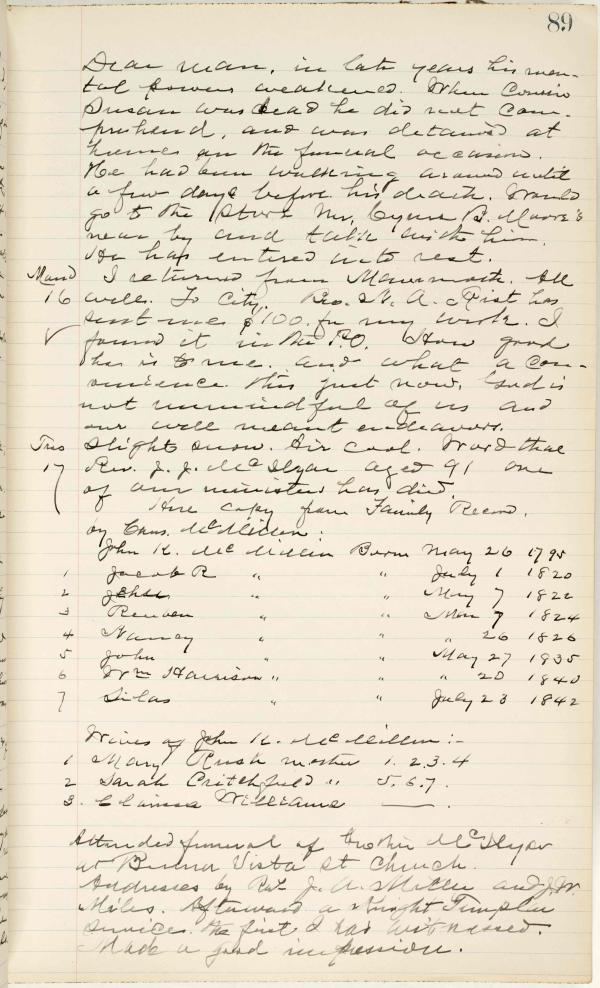 89
Dear man, in late years his men-
tal powers weakened. When Cousin
Susan was dead he did not com-
prehend, and was detained at
homes on the funeral occasion.
He had been walking around until
a few days before his death. Would
go to the store Mr. Cyrus B. Moore's
near by and talk with him.
He has entered into rest.
Mond I returned from Monmouth. All
16 well. To City. Bro. N. A. Rist has
sent me $100. for my work. I
found it in the P.O. How good
has is to me. and what a con-
venience this just now. God is
not unmindful of us and
our well meant endeavors.
Tues Slight snow. Air cool. Word that
17 Rev. J. J. McIlyar aged 91 one
of our ministers has died.
Here copy from Family Record.
by Chas. McMillen:
John K. McMillen Born May 26 1795
1 Jacob R " " July 1 1820
2 " May 7 1822
3 Reuben " " Mar 7 1824
4 Nancy " " " 26 1826
5 John " " May 27 1935
6 Wm Harrison " " " 20 1840
7 Silas " " July 23 1842
Wives of John K. McMillen:-
1 Mary Rush mother 1. 2. 3. 4
2 Sarah Critchfield " 5. 6. 7.
3. Clarissa Williams ——.
Attended funeral of Brother McIlyar
at Buena Vista St Church.
Addresses by Rev J. A. Miller and J. W.
Miles. Afterward a Knight Templar
service. the first I had witnessed.
Made a good impression.